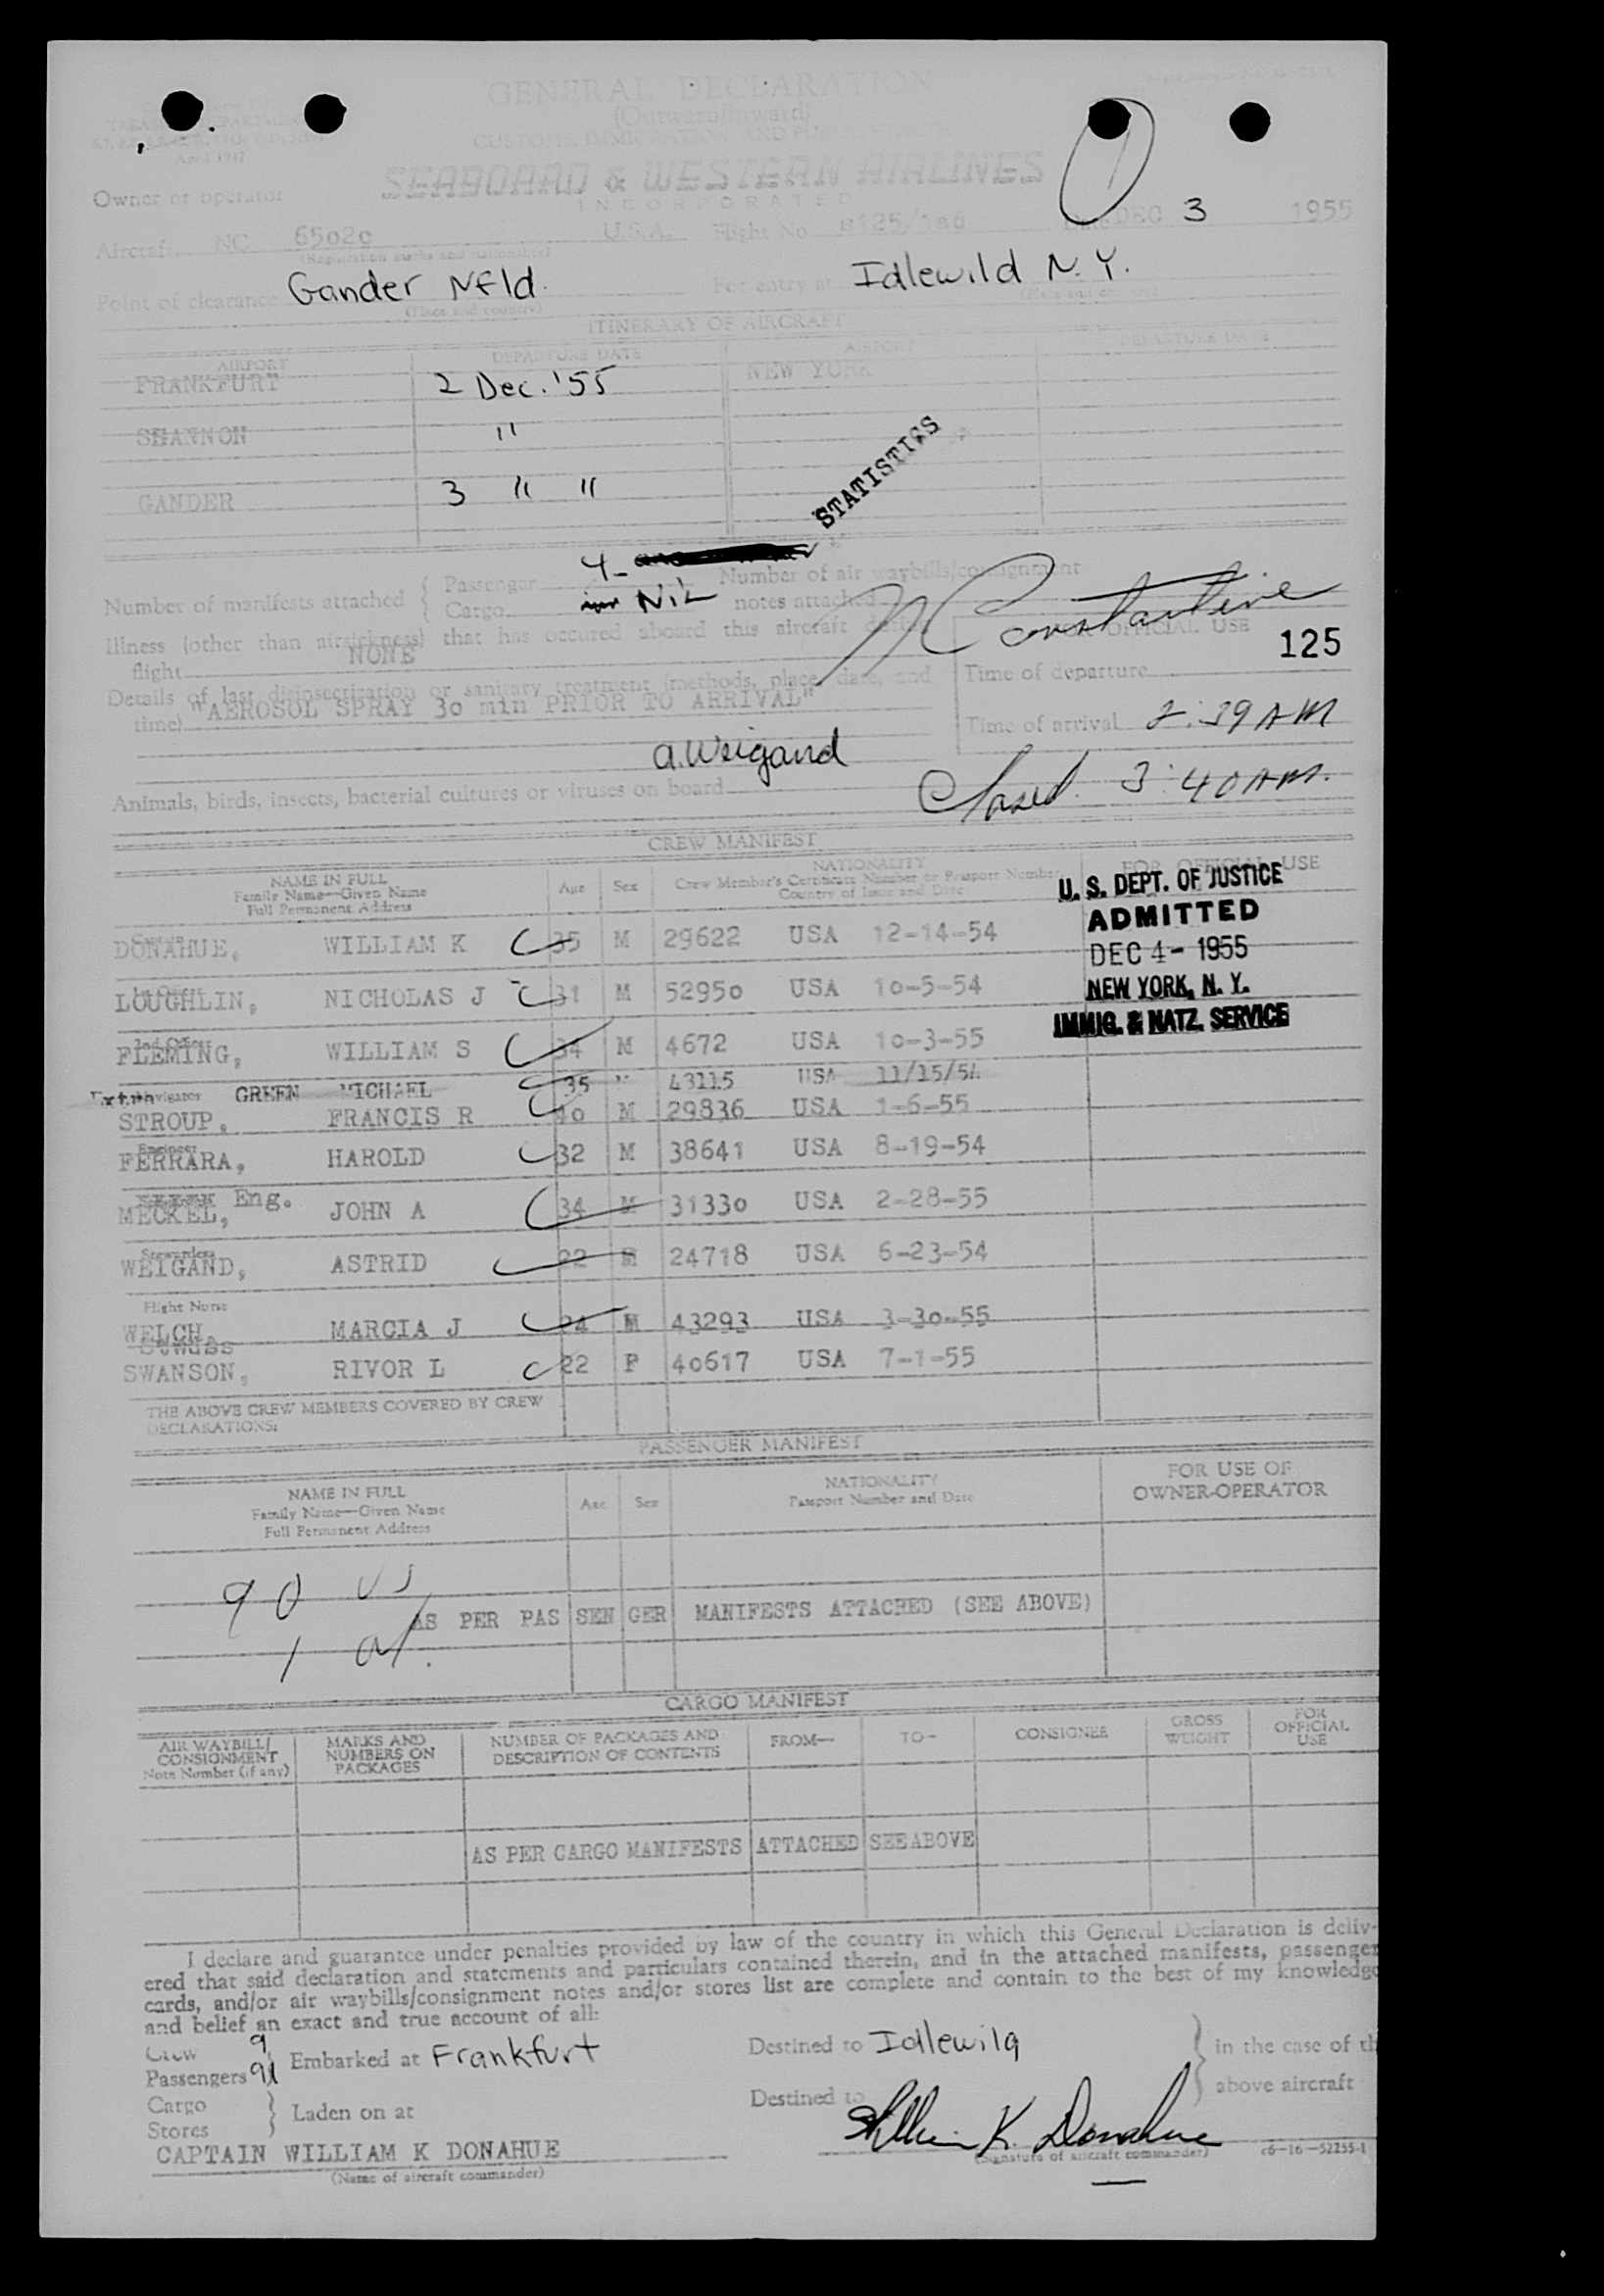 GENERAL DECLARATION
(Outward/Inward)
April 1947
SEABOARD & WESTERN AIRLINES
Owner or operator
INCORPORATED
Aircraft NC 65020 U.S.A. Flight No. Date DEC 3 1955
(Registration marks and nationality)
Point of clearance Gander Nfld. For entry at Idlewild N.Y.
(Place and country) (Place and country)
ITINERARY OF AIRCRAFT
AIRPORT DEPARTURE DATE AIRPORT DEPARTURE DATE
FRANKFURT 2 Dec. '55 NEW YORK
SHANNON "
GANDER 3 " "
STATISTICS
Number of manifests attached { Passenger 4- Number of air waybills/consignment
Cargo NiL notes attached
N Constantine
Illness (other than airsickness) that has occured aboard this aircraft during
flight NONE
FOR OFFICIAL USE
125
Details of last disinsectization or sanitary treatment (methods, place, date, and
time) "AEROSOL SPRAY 30 min PRIOR TO ARRIVAL"
Time of departure
Time of arrival 2:39 AM
A. Weigand
Closed 3:40 AM.
Animals, birds, insects, bacterial cultures or viruses on board
CREW MANIFEST
NAME IN FULL
Family Name—Given Name
Full Permanent Address
Age Sex
NATIONALITY
Crew Member's Certificate Number or Passport Number
Country of Issue and Date
FOR OFFICIAL USE
U. S. DEPT. OF JUSTICE
ADMITTED
DEC 4- 1955
NEW YORK, N. Y.
IMMIG. & NATZ. SERVICE
DONAHUE, WILLIAM K 35 M 29622 USA 12-14-54
LOUGHLIN, NICHOLAS J 31 M 52950 USA 10-5-54
2nd Officer
FLEMING, WILLIAM S 34 M 4672 USA 10-3-55
Extra Navigator GREEN MICHAEL 35 M 43115 USA 11/15/54
STROUP, FRANCIS R 40 M 29836 USA 1-6-55
Engineer
FERRARA, HAROLD 32 M 38641 USA 8-19-54
Eng.
MECKEL, JOHN A 34 M 31330 USA 2-28-55
Stewardess
WEIGAND, ASTRID 22 M 24718 USA 6-23-54
Flight Nurse
WELCH MARCIA J 24 M 43293 USA 3-30-55
SWANSON, RIVOR L 22 F 40617 USA 7-1-55
THE ABOVE CREW MEMBERS COVERED BY CREW
DECLARATIONS:
PASSENGER MANIFEST
NAME IN FULL
Family Name—Given Name
Full Permanent Address
Age Sex
NATIONALITY
Passport Number and Date
FOR USE OF
OWNER-OPERATOR
90 US
AS PER PAS SEN GER MANIFESTS ATTACHED (SEE ABOVE)
1 al.
CARGO MANIFEST
AIR WAYBILL/
CONSIGNMENT
Note Number (if any)
MARKS AND
NUMBERS ON
PACKAGES
NUMBER OF PACKAGES AND
DESCRIPTION OF CONTENTS
FROM— TO— CONSIGNEE
GROSS
WEIGHT
FOR
OFFICIAL
USE
AS PER CARGO MANIFESTS ATTACHED SEE ABOVE
I declare and guarantee under penalties provided by law of the country in which this General Declaration is deliv-
ered that said declaration and statements and particulars contained therein, and in the attached manifests, passenger
cards, and/or air waybills/consignment notes and/or stores list are complete and contain to the best of my knowledge
and belief an exact and true account of all:
Crew 9
Passengers 91 } Embarked at Frankfurt Destined to Idlewild } in the case of th
above aircraft
Cargo
Stores } Laden on at Destined to
William K. Donahue
CAPTAIN WILLIAM K DONAHUE
(Name of aircraft commander) (Signature of aircraft commander) c6—16—52255-1